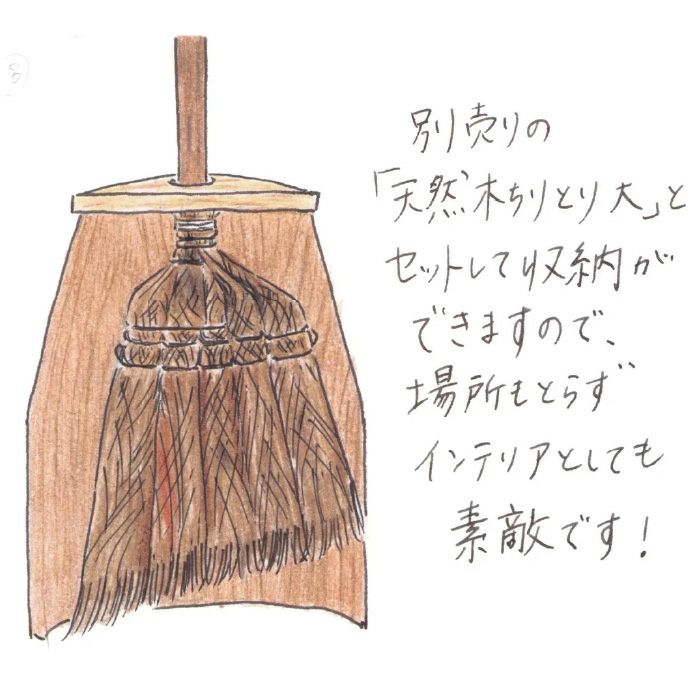 別売りの
「天然木ちりとり大」と
セットして収納が
できますので、
場所もとらず
インテリアとしても
素敵です!